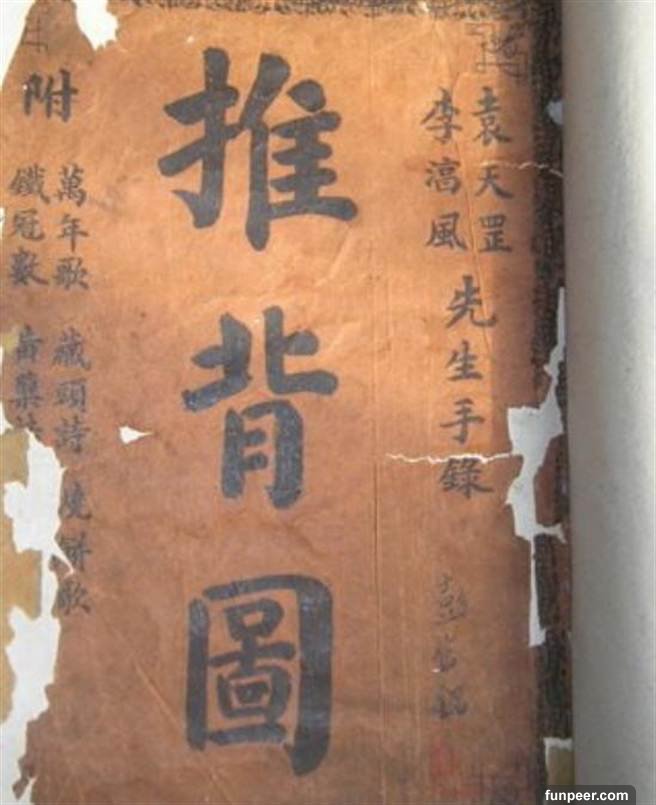 袁天罡
李淳風
先生手錄
推背圖
附
萬年歌 藏頭詩 燒餅歌
鐵冠數 黃櫱
funpeer.com